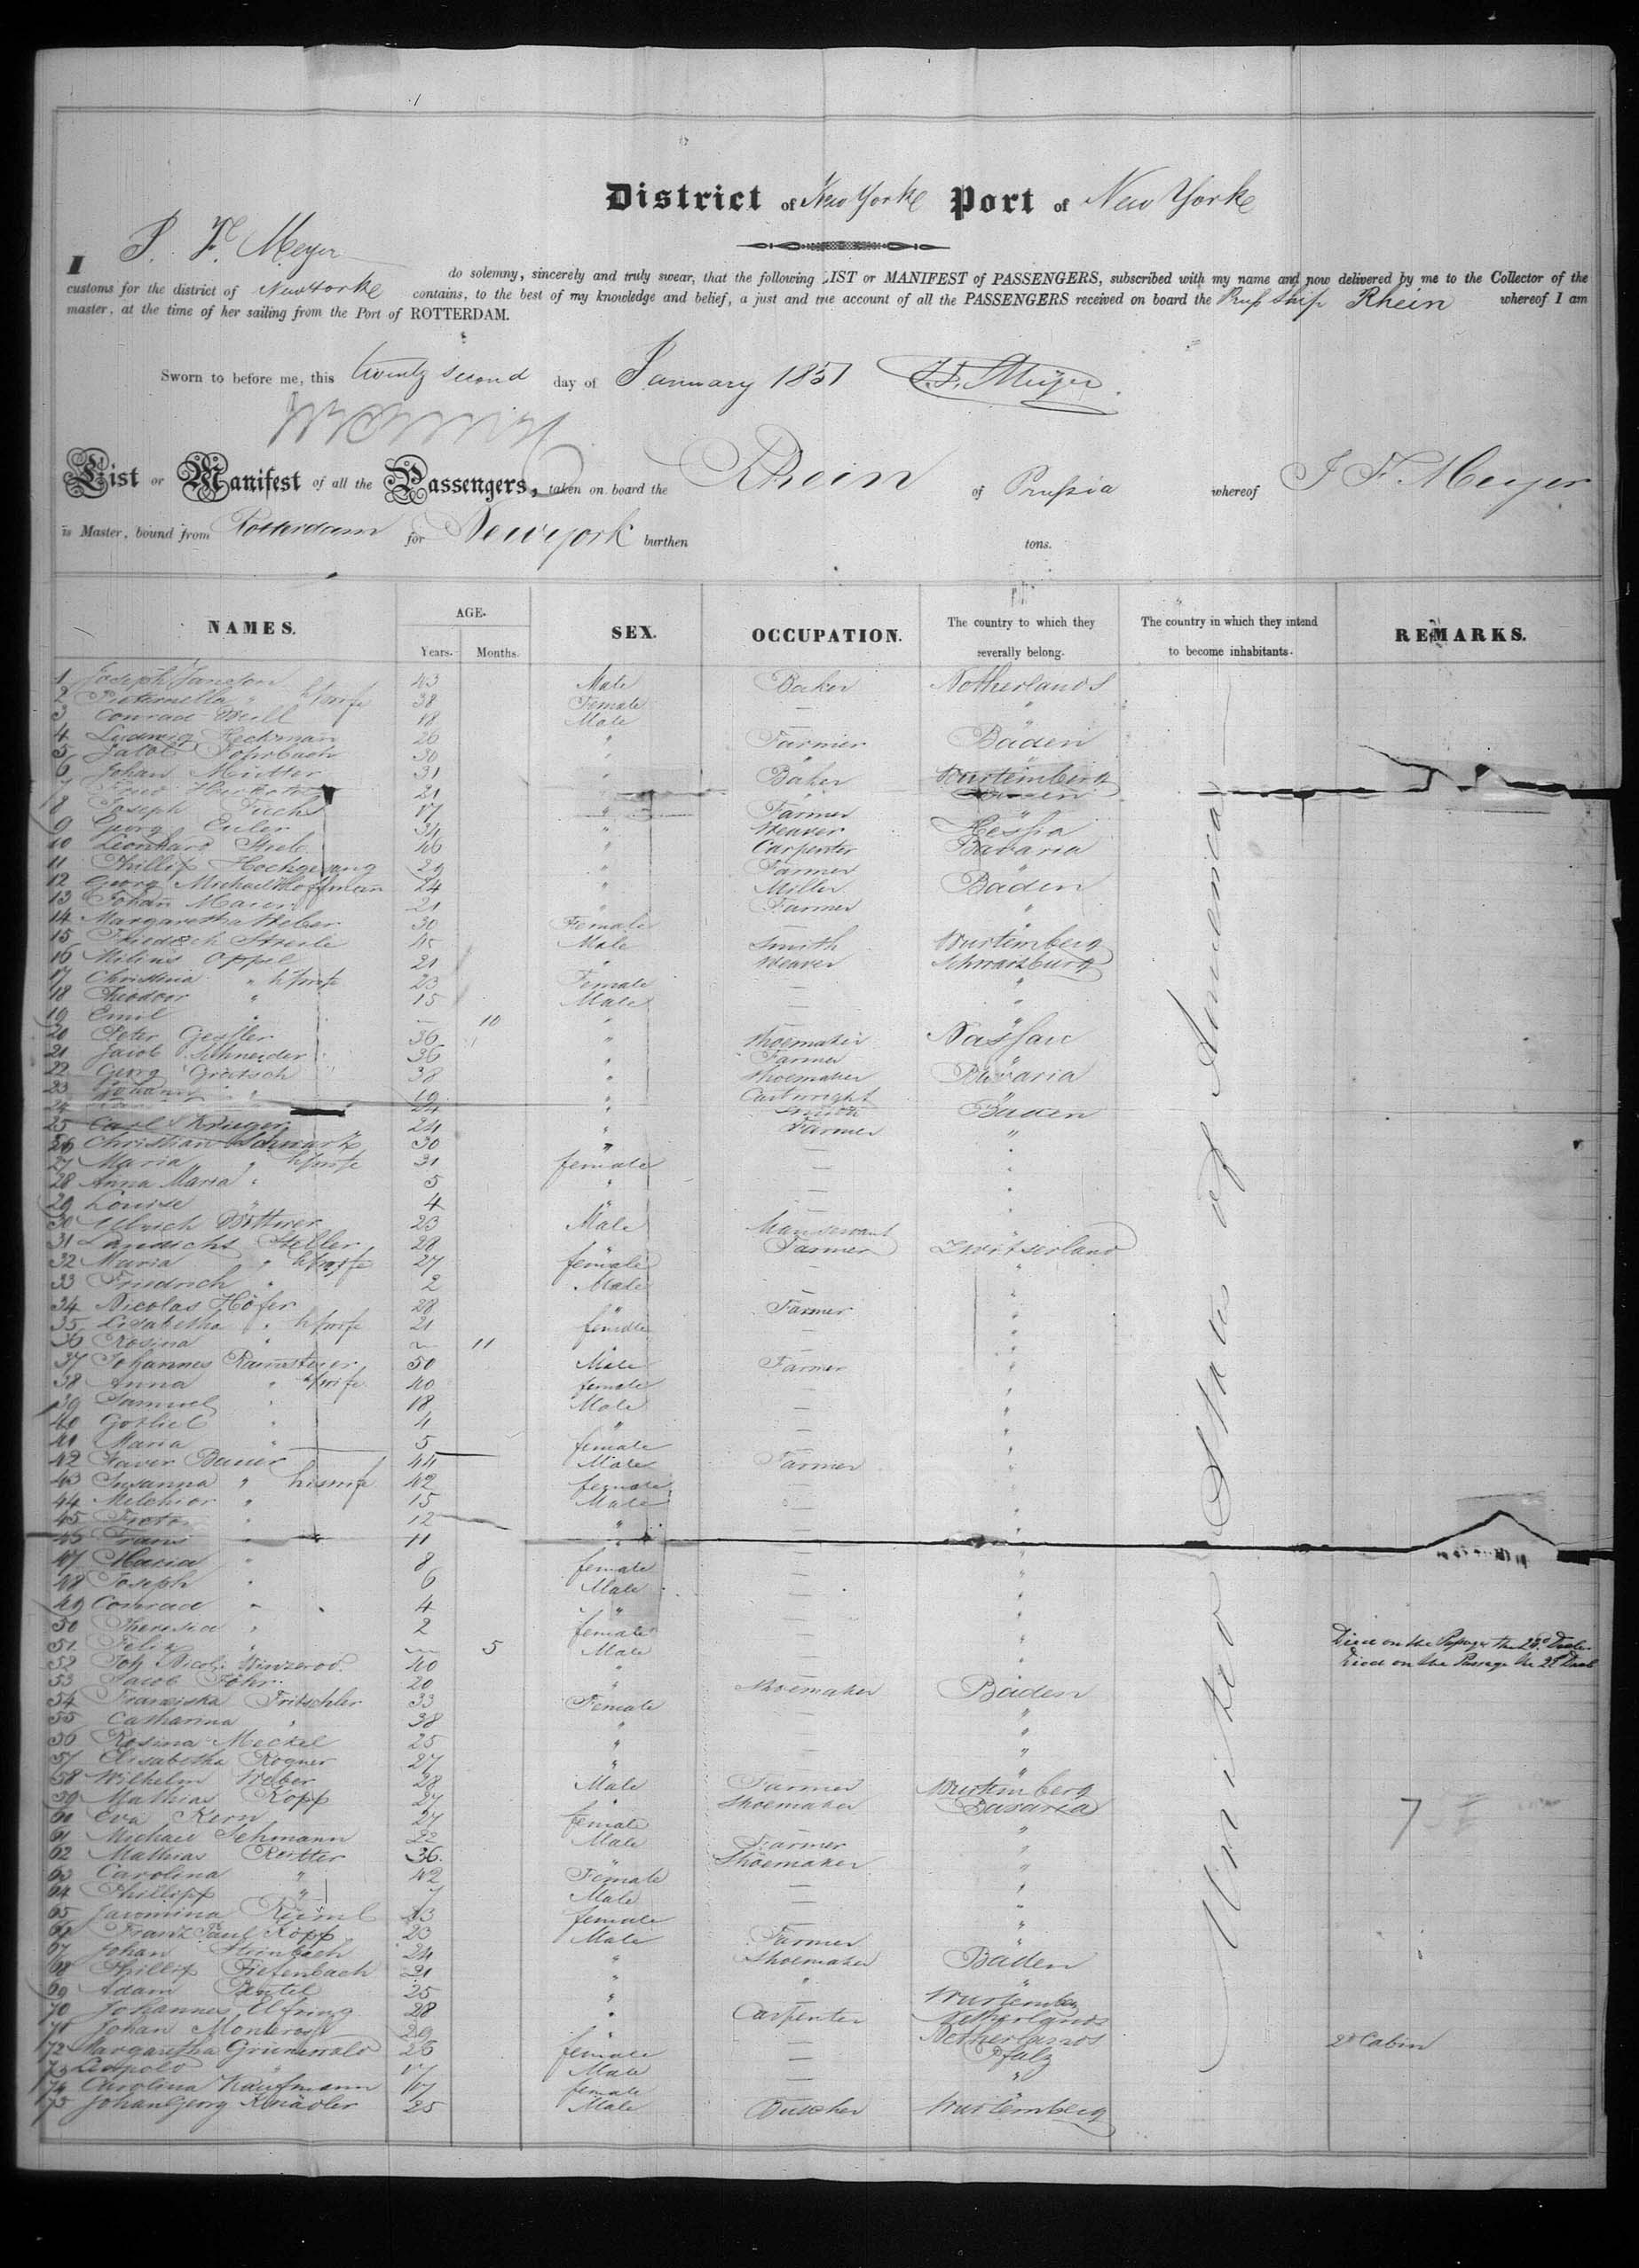 District of New Yorke Port of New Yorke
I J. F. Meyer do solemny, sincerely and truly swear, that the following LIST or MANIFEST of PASSENGERS, subscribed with my name and now delivered by me to the Collector of the
customs for the district of New Yorke contains, to the best of my knowledge and belief, a just and true account of all the PASSENGERS received on board the Pruss Ship Rhein whereof I am
master, at the time of her sailing from the Port of ROTTERDAM.
Sworn to before me, this twenty second day of January 1851 J. F. Meyer.
List or Manifest of all the Passengers, taken on board the Rhein of Prussia whereof J F. Meyer
is Master, bound from Rotterdam for New york burthen tons.
NAMES. AGE. Years. Months. SEX. OCCUPATION. The country to which they severally belong. The country in which they intend to become inhabitants. REMARKS.
United States of America
1 Joseph Janson 43 Male Baker Netherlands
2 Petronella " h/wife 38 Female — "
3 Conrad 18 Male —
4 Ludwig Heckman 26 " Farmer Baden
5 Jacob 30 " "
6 Johan 31 " Baker Wurtemberg
7 21 " Baden
8 Joseph 17 " Farmer "
9 Georg Euler 34 " Weaver Hessia
10 Leonhard Streb 46 " Carpenter Bavaria
11 Phillip Hochgesang 29 " Farmer "
12 Georg Michael Hoffman 24 " Miller Baden
13 Johan Maier 21 " Farmer "
14 Margaretha Weber 30 Female —
15 Friedrich 45 Male Smith Wurtemberg
16 Oppel 21 " Weaver Schwarzburg
17 Christina " h/wife 23 Female — "
18 Theodoor " 15 Male — "
19 Emil " — 10 " — "
20 Peter Gessler 36 " Shoemaker Nassau
21 Jacob Schneider 36 " Farmer "
22 Georg Grötsch 38 " Shoemaker Bavaria
23 Johann " 19 " Cartwright "
24 24 " Smith Baden
25 Carl Krieger 24 " Farmer "
26 Christian Schwartz 30 " — "
27 Maria " h/wife 31 female — "
28 Anna Maria " 5 " — "
29 Louise " 4 " — "
30 Ulrich Büttner 23 Male Manservant "
31 Steller 28 Farmer Zwitserland
32 Maria " h/wife 27 female — "
33 Friedrich " 2 Male — "
34 Nicolas Höfer 28 " Farmer "
35 Lisabetha " h/wife 21 female — "
36 Rosina " — 11 " "
37 Johannes Ramsteier 50 Male Farmer "
38 Anna " h/wife 40 female —
39 Samuel " 18 Male — "
40 Gotlieb " 4 " — "
41 Maria " 5 female — "
42 Xaver Bauer 44 Male Farmer "
43 Susanna " his wife 42 female — "
44 Melchior " 15 Male — "
45 " 12 " — "
46 Frans " 11 " — "
47 Maria " 8 female — "
48 Joseph " 6 Male — "
49 Conrad " 4 " — "
50 Theresia " 2 female — " Died on the Passage the
51 Felix " — 5 Male — " Died on the Passage the
52 Joh Nicol: 40 " — "
53 Jacob Föhr 20 " Shoemaker Baden
54 Franciska Fritschler 33 Female — "
55 Catharina " 38 " — "
56 Rosina Meckel 25 " — "
57 Elisabetha Rogner 27 " — "
58 Wilhelm Weber 28 Male Farmer Wurtemberg
59 Mathias Kopp 27 " Shoemaker Bavaria
60 Eva Kern 27 female "
61 Michael Lehmann 22 Male Farmer "
62 Mathias 36 " Shoemaker "
63 Carolina " 42 Female — "
64 Phillipp " 7 Male — "
65 female — "
66 Franz Paul Kopp 23 Male Farmer "
67 Johan Steinbach 24 " Shoemaker Baden
68 Phillip Tiefenbach 21 " " "
69 Adam Beutel 25 " Wurtemberg
70 Johannes Elfring 28 " Carpenter Netherlands
71 Johan 29 Netherlands 2d Cabin
72 Margaretha Grünewald 26 female — Pfalz
73 Leopold " 17 Male — "
74 Carolina Kaufmann 17 female —
75 Johan Georg 25 Male Wurtemberg